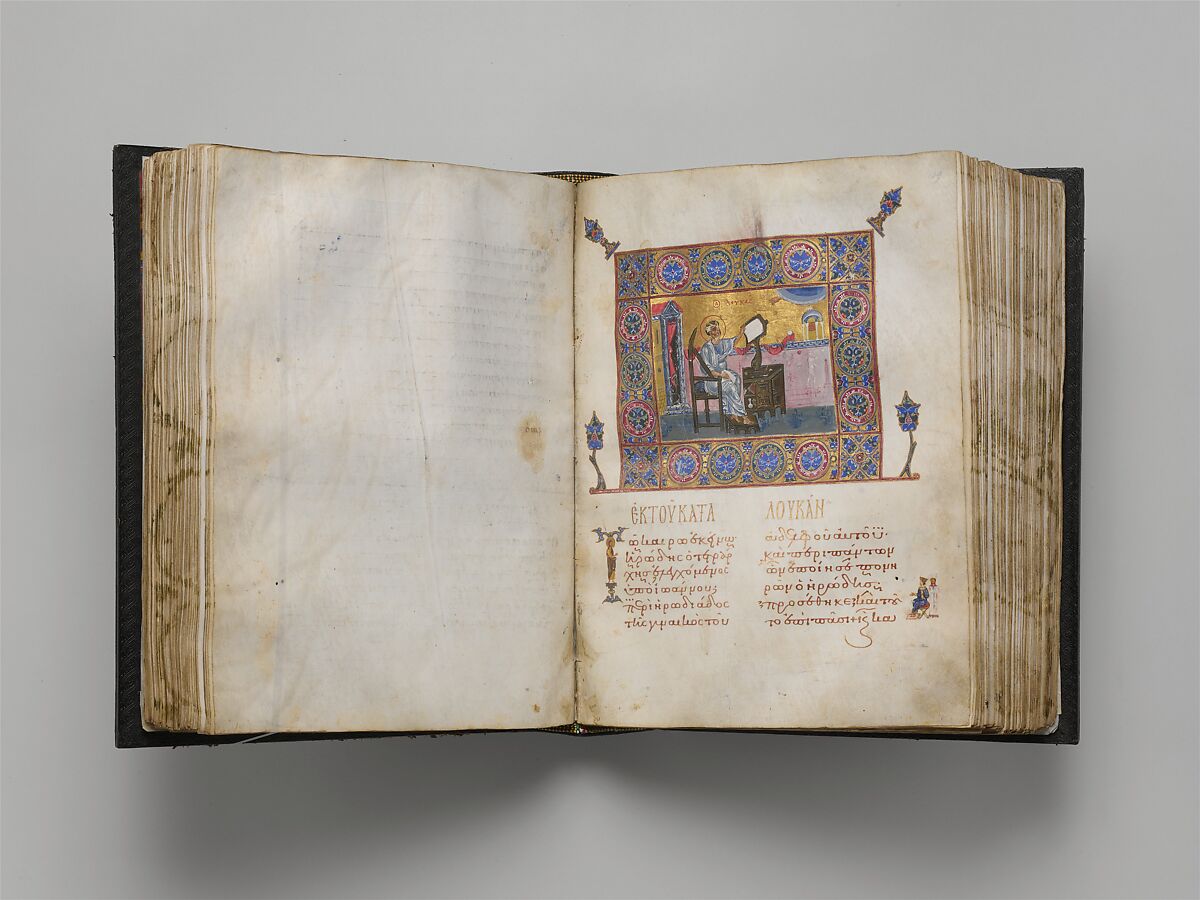 Ο ΛΟΥΚΑC
ΕΚ ΤΟΥ ΚΑΤΑ ΛΟΥΚΑΝ
Τῶ καιρῶ ἐκείνω
ἡρώδης ὁ τετράρ
χης ἐλεγχόμενος
ὑπὸ ἰωάννου
περὶ ἡρωδιάδος
τῆς γυναικὸς τοῦ
ἀδελφοῦ αὐτοῦ·
καὶ περὶ πάντων
ὧν ἐποίησε πονη
ρῶν ὁ ἡρώδης·
προσέθηκε καὶ τοῦ
το ἐπὶ πᾶσι καὶ